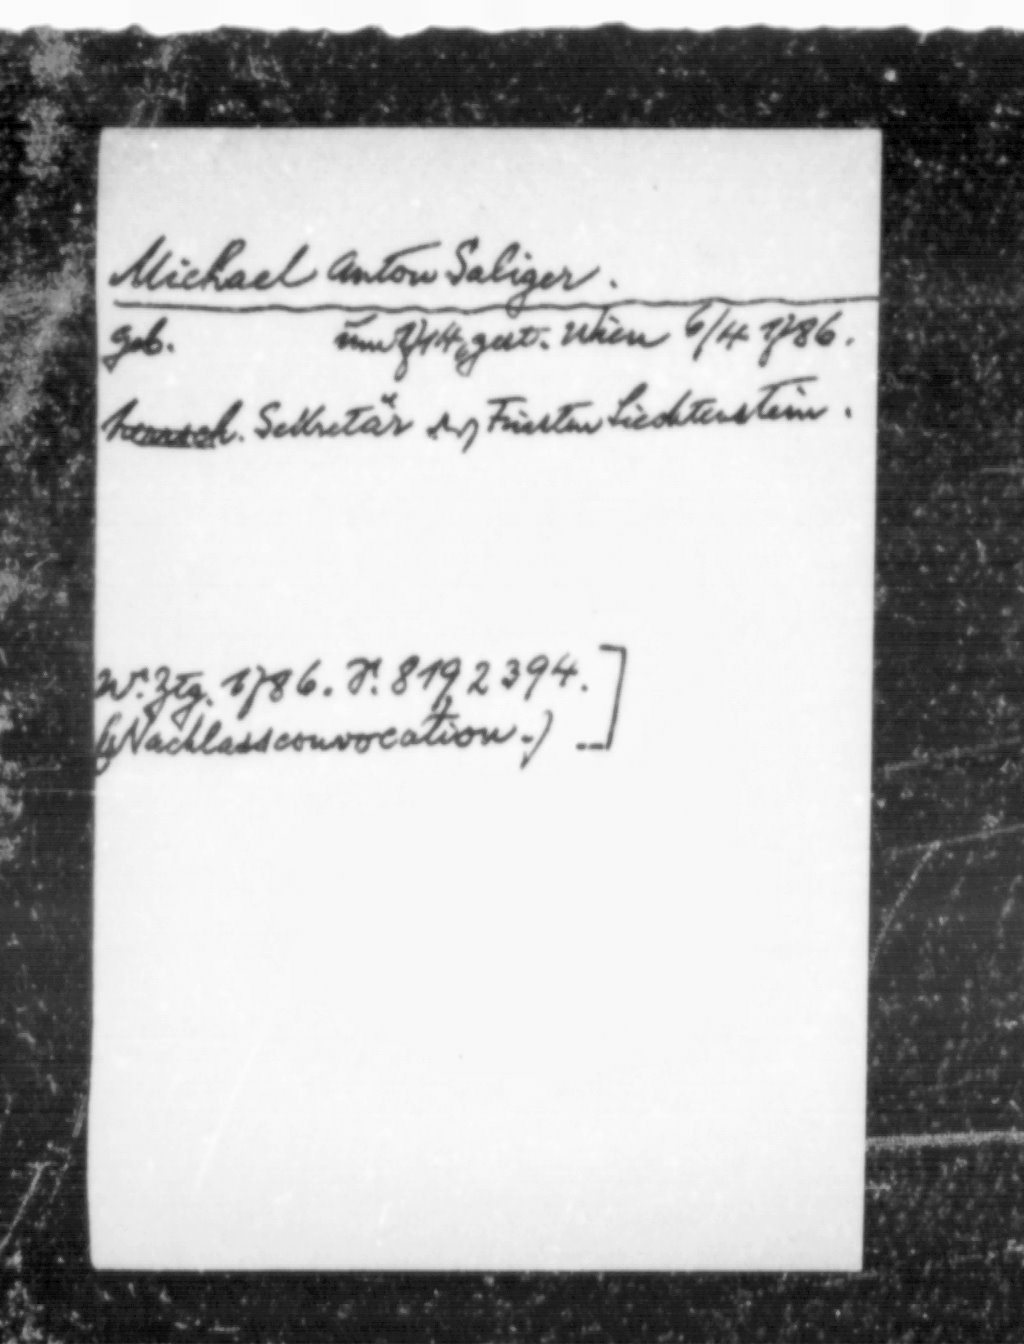 Michael Anton Saliger.
geb. um 1714, gest. Wien 6/4 1786.
herrsch. Sekretär des Fürsten Liechtenstein.
Wr. Ztg. 1786. S. 819, 2394.
(Nachlassconvocation.)